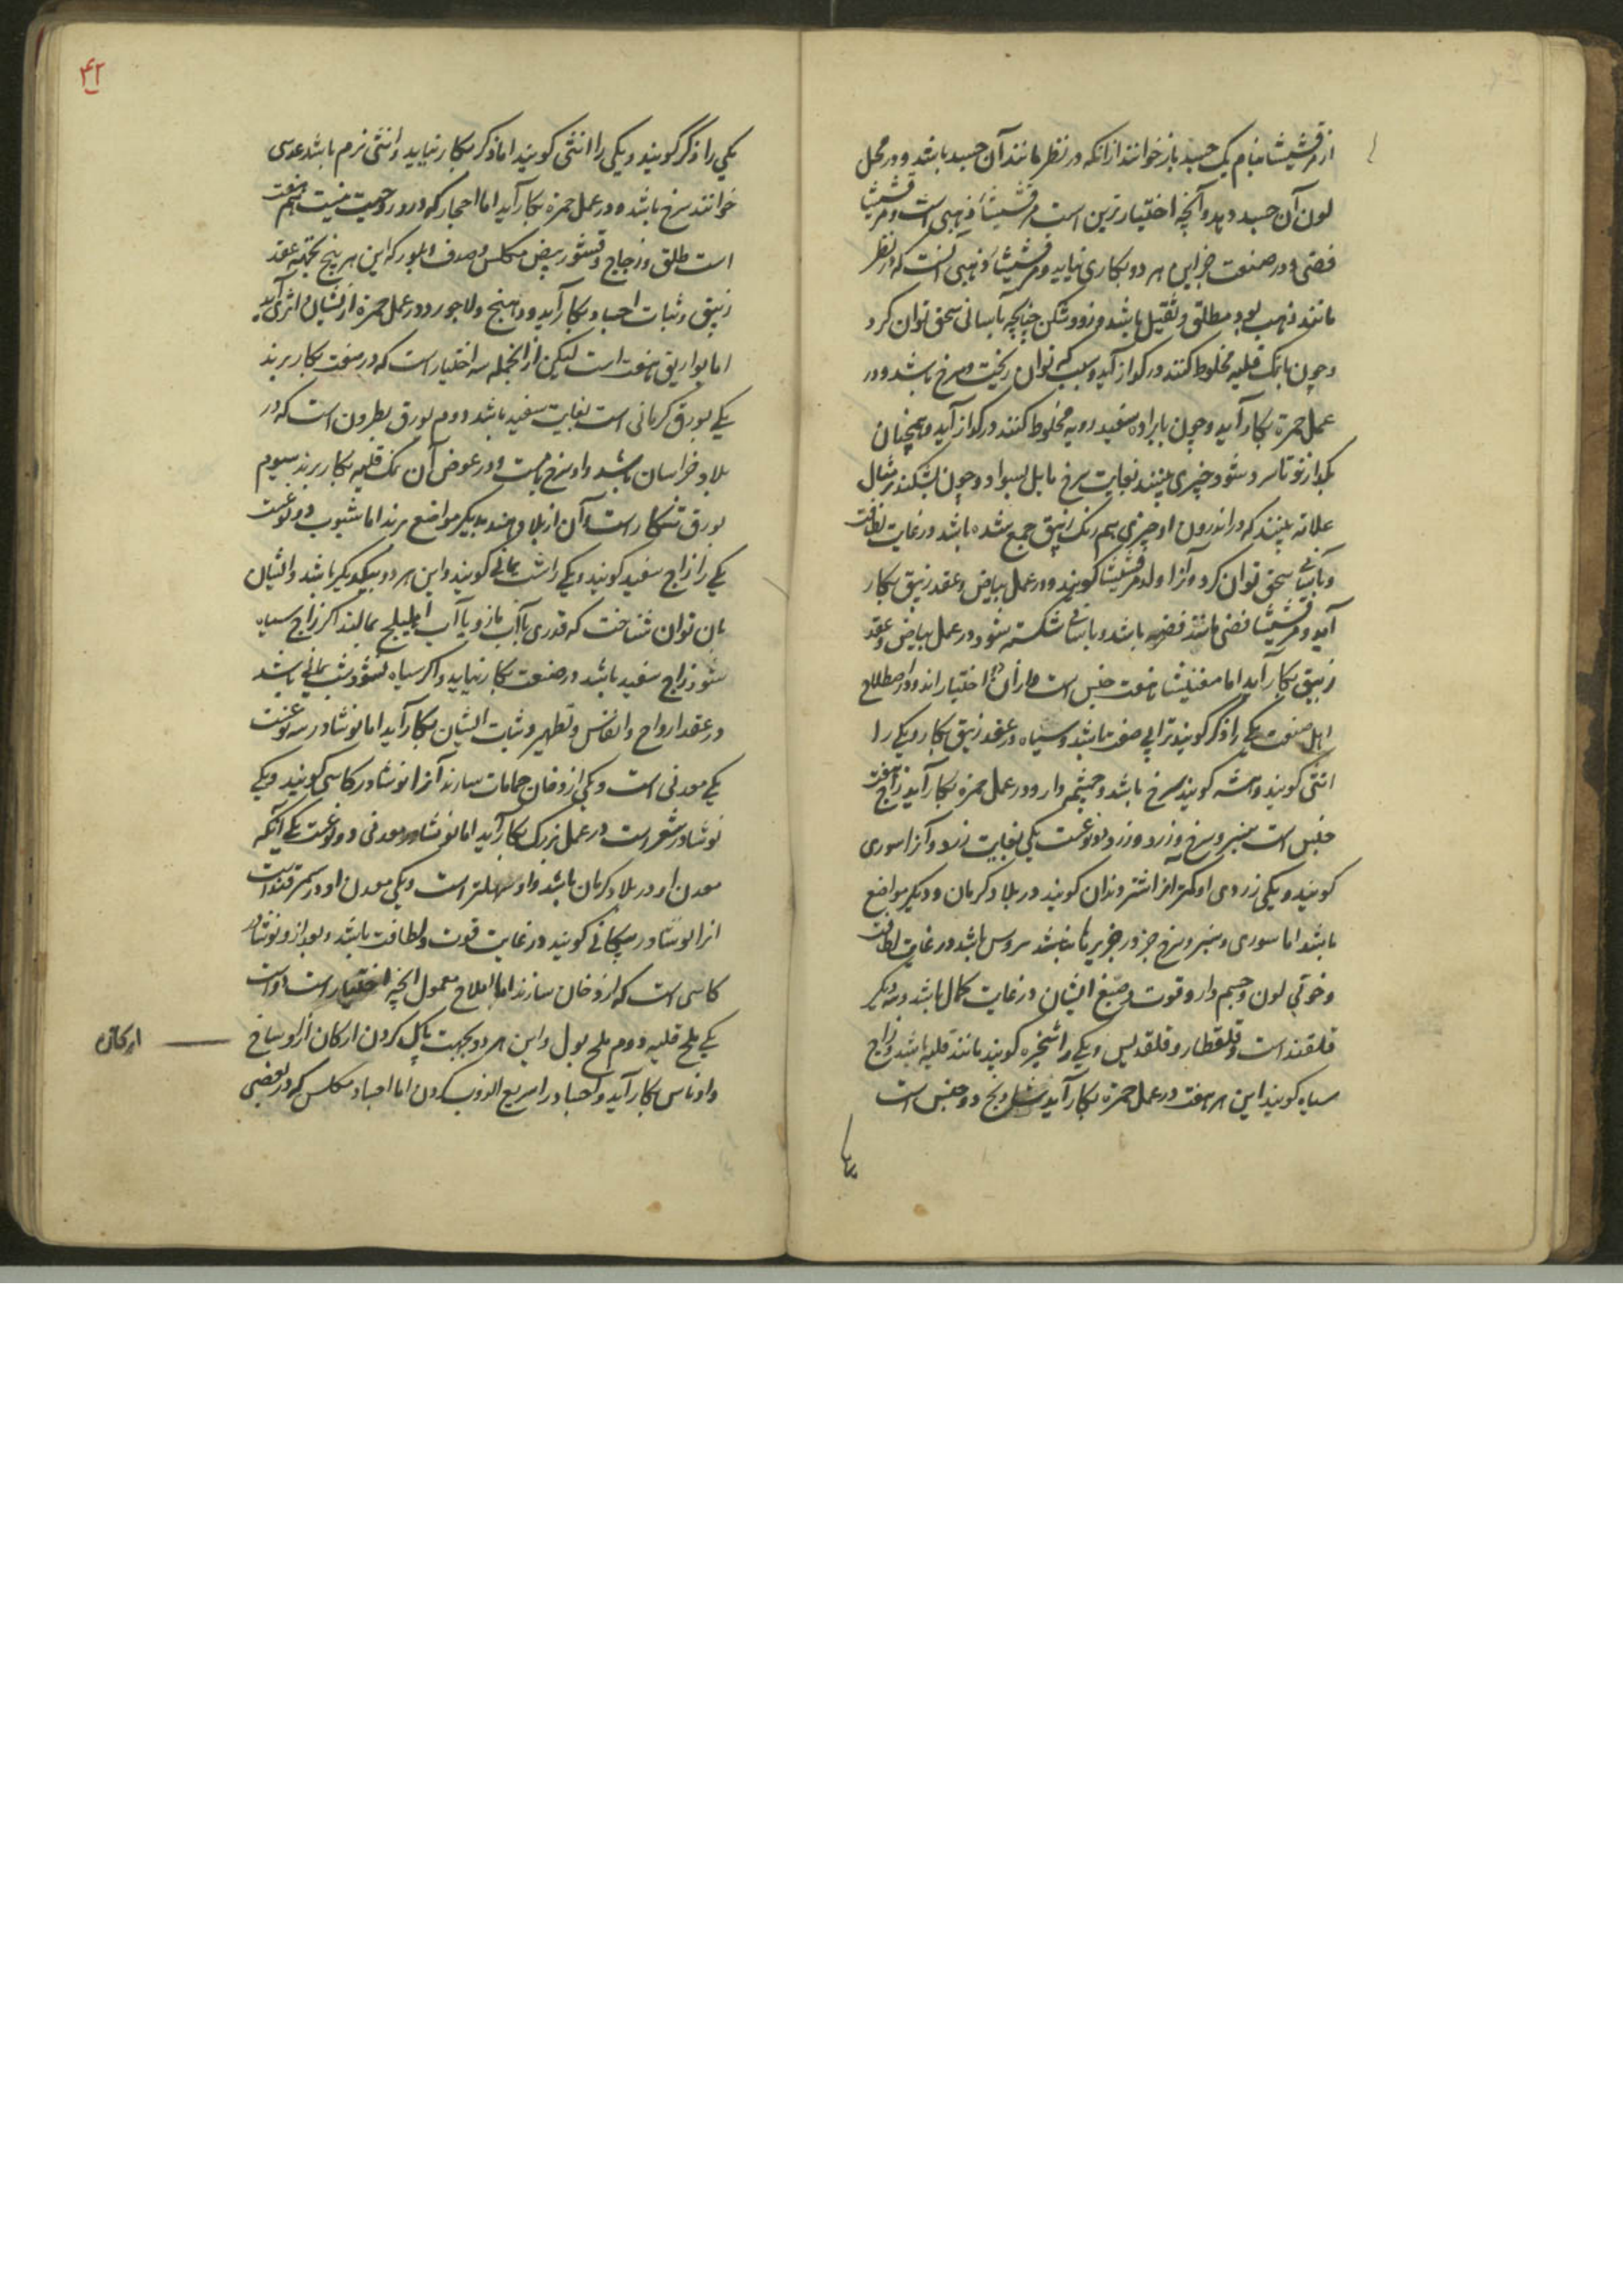 از مرقشیشا بنام یک جسد باز خوانند از انکه در نظر مانند آن جسد باشد و در محل
لون آن جسد دهد و آنچه اختیارترین است مرقشیشا ذهبی است و مرقشیشا
فضی و در صنعت جز این هر دو بکاری نیاید و مرقشیشا ذهبی آنست که در نظر
مانند ذهب بود مطلق و ثقیل باشد و زود شکن چنانچه بآسانی سحق توان کرد
و چون با نمک قلیه مخلوط کنند در گداز آید و سبیکه توان ریخت و سرخ باشد و در
عمل حمرة بکار آید و چون با براده سفید رویه مخلوط کنند در گداز آید و همچنان
بگدازند تا سرد شود چیزی بینند بغایت سرخ مایل بسواد و چون بشکنند مثال
علانه بینند که در اندرون او چیزی هم رنگ زیبق جمع شده باشد در غایت لطافت
و بآسانی سحق توان کرد و آنرا ولد مرقشیشا کویند و در عمل بیاض و عقد زیبق بکار
آید و مرقشیشا فضی مانند فضه باشد و بآسانی شکسته شود و در عمل بیاض و عقد
زیبق بکار آید اما مغنیشا هفت جنس است و از آن دو اختیار اند و در اصطلاح
اهل صنعت یکی را ذکر کویند ترابی صفت باشد و سیاه در عقد زیبق بکار و یکی را
انثی کویند و سرخ باشد و چشم دار و در عمل حمرة بکار آید زاج هفت
جنس است سبز و سرخ و زرد و زرد دو نوعست یکی بغایت زرد و آنرا سوری
کویند و یکی زردی او کمتر آنرا اشتر دندان کویند در بلاد کرمان و دیگر مواضع
باشد اما سوری و سبز و سرخ جز در جزیره نباشد سروس باشد در غایت لطافت
و خوبی لون و جسم دار و قوت و صبغ ایشان در غایت کمال باشد و سه دیگر
قلقند است و قلقطار و قلقدیس و یکی را شخیره کویند مانند قلیه باشد و زاج
سیاه کویند این هر هفت در عمل حمرة بکار آید شادنج دو جنس است
یکی
۴۲
یکی را ذکر کویند و یکی را انثی کویند اما ذکر بکار نیاید و انثی نرم باشد عدسی
خوانند سرخ باشد و در عمل حمرة بکار آید اما احجار که در و روحیت نیست هم هفت
است طلق و زجاج و قشور بیض مکلس و صدف و بلور که این هر پنج بجهة عقد
زیبق و ثبات اجساد بکار آید و دهنج و لاجورد در عمل حمرة از ایشان اثری آید
اما بواریق هفت است لیکن از انجمله سه اختیار است که در صنعت بکار برند
یکی بورق کرمانی است بغایت سفید باشد دوم بورق بطرون است که در
بلاد خراسان باشد و او سرخ است و در عوض آن نمک قلیه بکار برند سیوم
بورق تنکار است و آن از بلاد هند بدیگر مواضع برند اما شبوب دو نوعست
یکی را زاج سفید کویند و یکی را شب یمانی کویند و این هر دو بیکدیگر باشد و ایشان
بان توان شناخت که قدری با آب مازو یا آب هلیلج بمالند اگر زاج سیاه
شود زاج سفید باشد در صنعت بکار نیاید و اگر سیاه نشود شب یمانی باشد
در عقد ارواح و انفاس و تطهیر و ثبات ایشان بکار آید اما نوشادر سه نوعست
یکی معدنی است و یکی از دخان حمامات سازند آنرا نوشادر کاسی کویند و یکی
نوشادر شعر است در عمل بزرگ بکار آید اما نوشادر معدنی دو نوعست یکی آنکه
معدن او در بلاد کرمان باشد و او سهلتر است و یکی معدن او در سمرقند است
انرا نوشادر پیکانی کویند در غایت قوت و لطافت باشد و بعد از و نوشادر
کاسی است که از دخان سازند اما املاح معمول انچه اختیار است دو است
یکی ملح قلیه دوم ملح بول و این هر دو بجهت پاک کردن ارکان از اوساخ
و ادناس بکار آید و اجساد را سریع الذوب کردن اما اجساد مکلس که در بعضی
ارکان